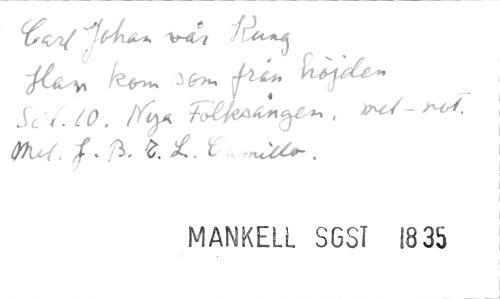 Carl Johan vår Kung
Han kom som från höjden
Sid. 10. Nya Folksången. mel-not.
Mel. J. B. E. L. Camillo.
MANKELL SGST 1835